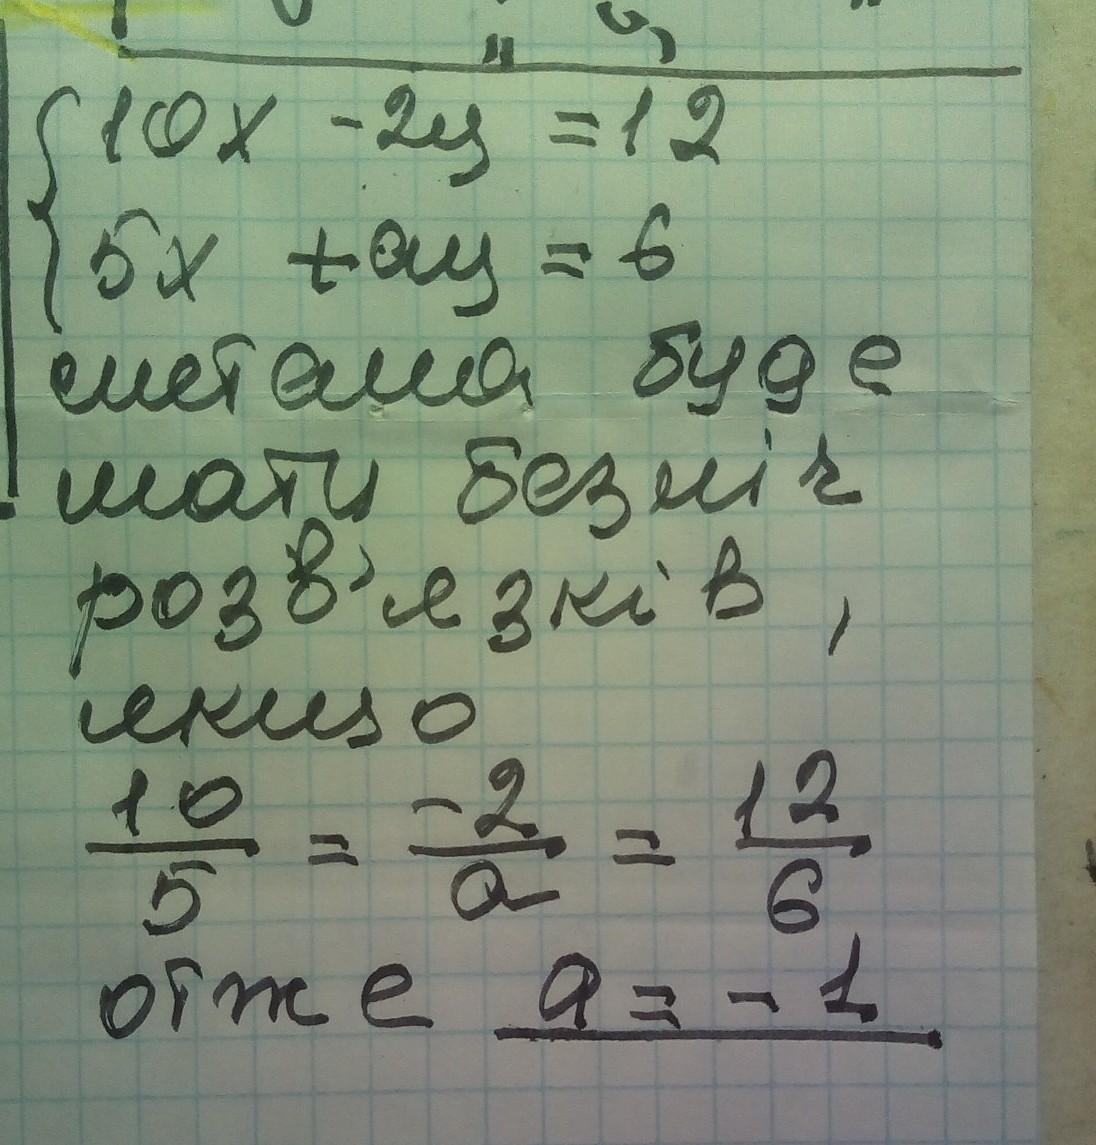 10x - 2y = 12
5x + ay = 6
система буде
мати безліч
розв'язків,
якщо
10/5 = -2/a = 12/6
отже a = -1